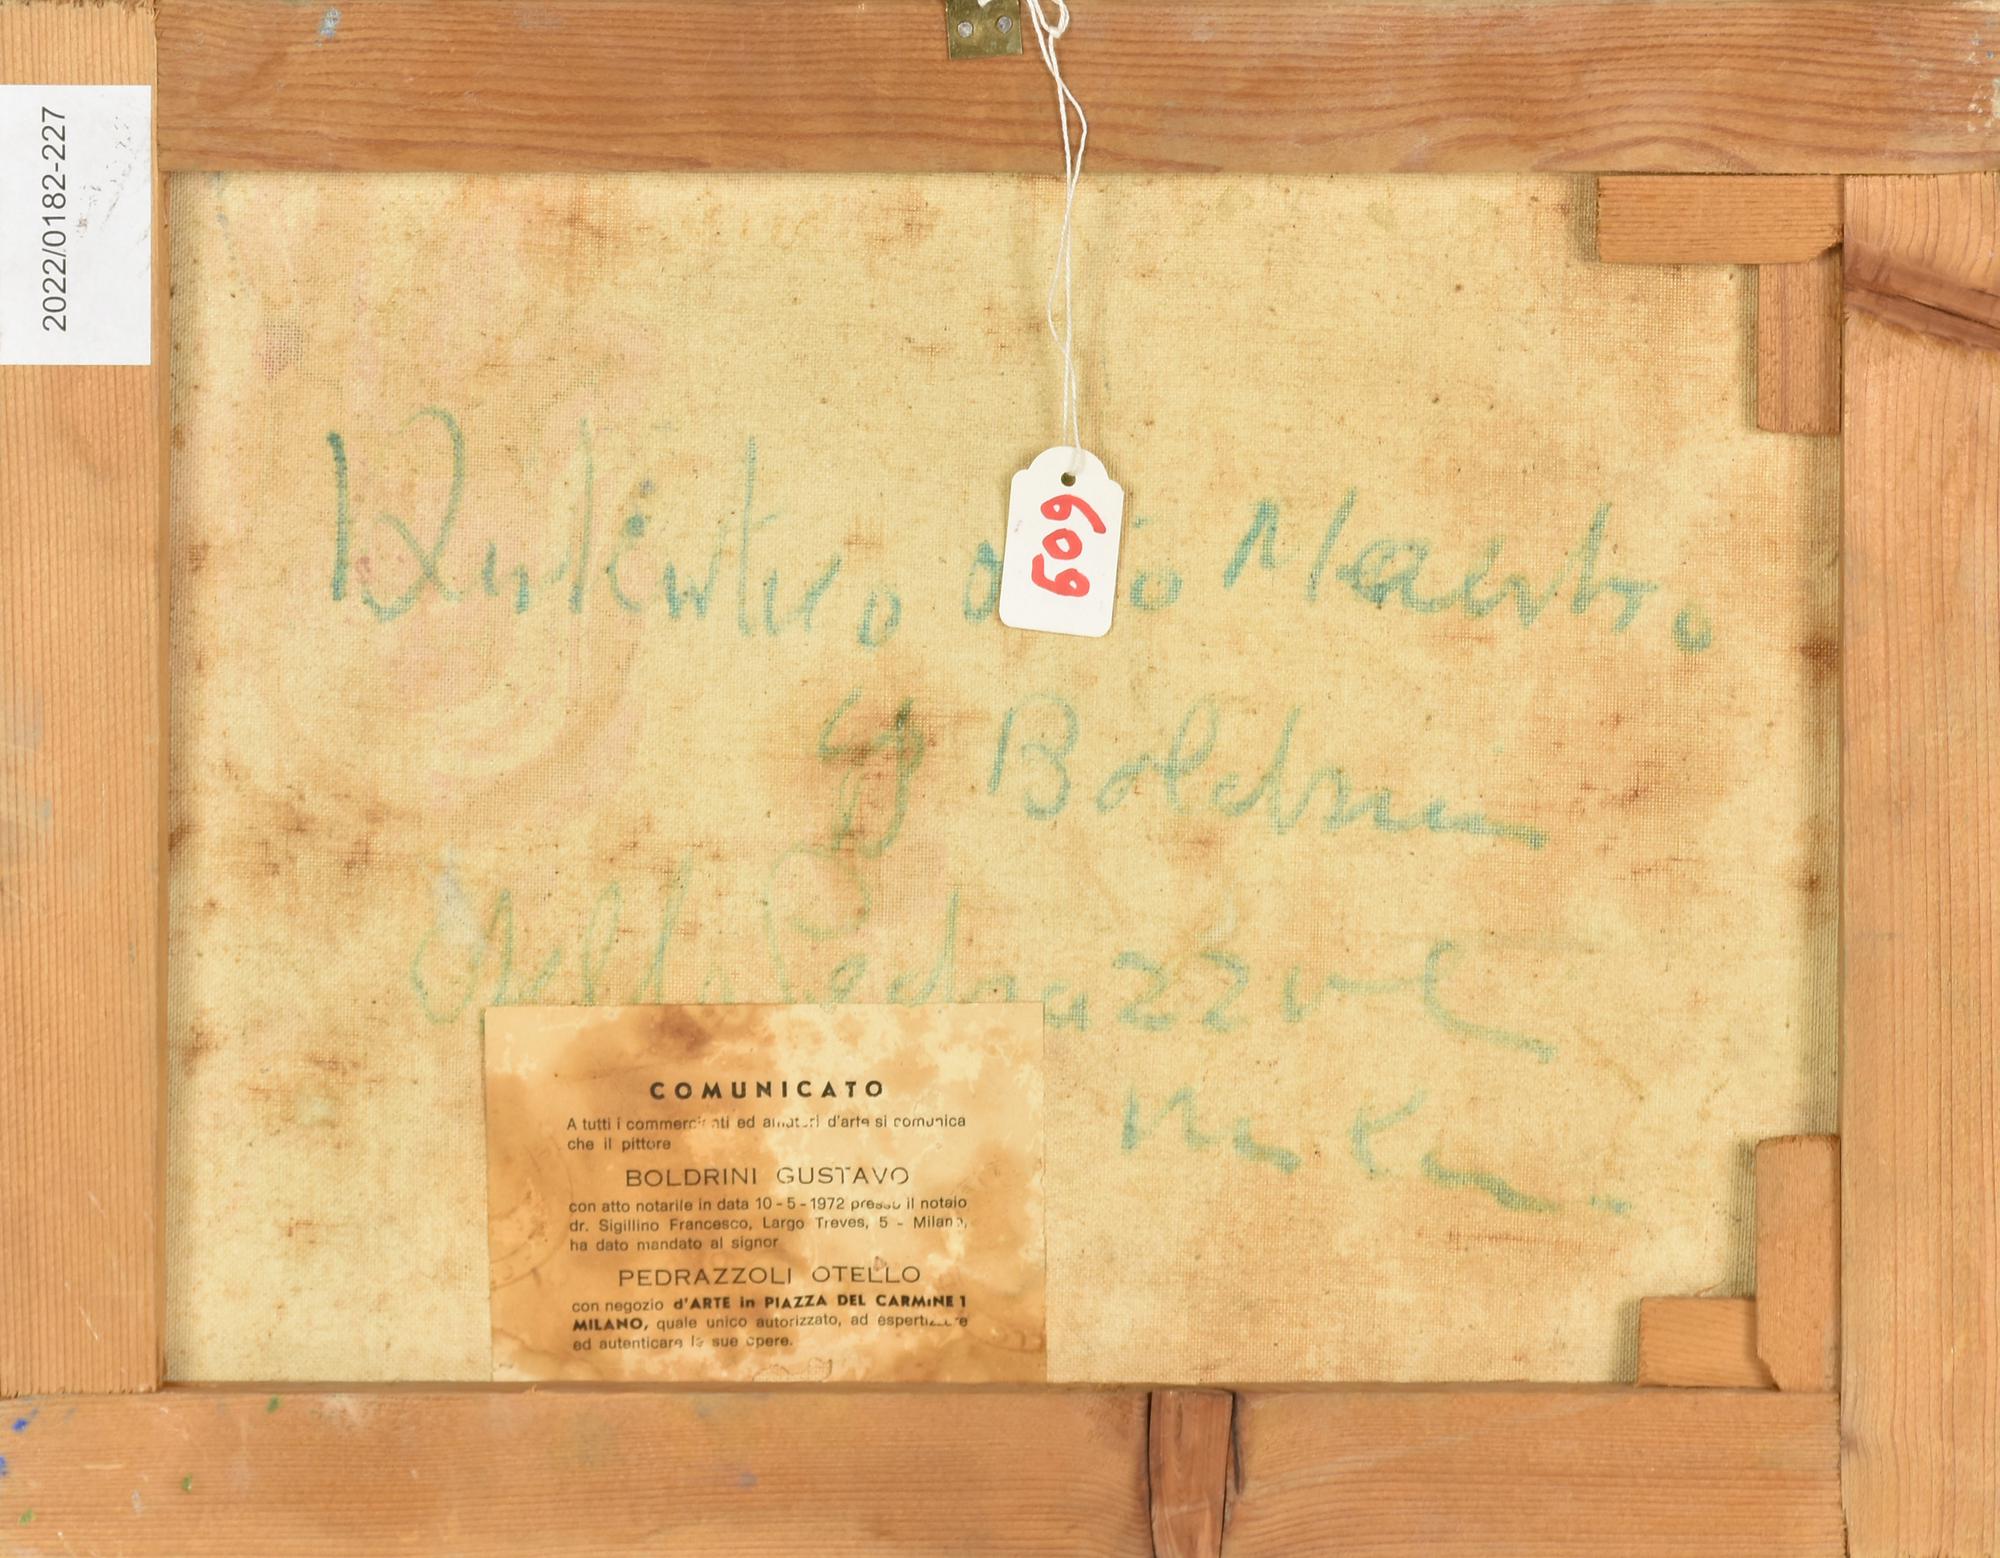 2022/0182-227
609
Autentico olio Maestro
G Boldrini
Otello Pedrazzoli
Milano
COMUNICATO
A tutti i commercianti ed amatori d'arte si comunica
che il pittore
BOLDRINI GUSTAVO
con atto notarile in data 10 - 5 - 1972 presso il notaio
dr. Sigillino Francesco, Largo Treves, 5 - Milano,
ha dato mandato al signor
PEDRAZZOLI OTELLO
con negozio d'ARTE in PIAZZA DEL CARMINE 1
MILANO, quale unico autorizzato, ad espertizzare
ed autenticare le sue opere.